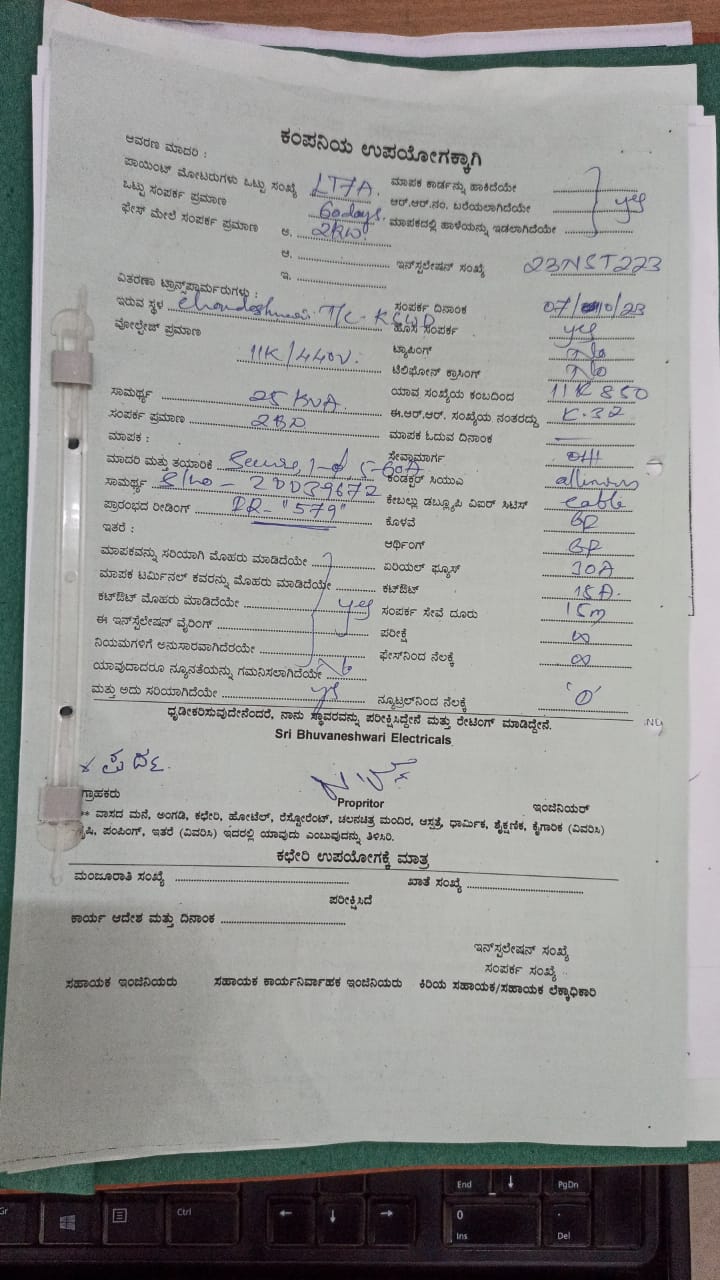 ಕಂಪನಿಯ ಉಪಯೋಗಕ್ಕಾಗಿ
ಆವರಣ ಮಾದರಿ :
ಪಾಯಿಂಟ್ ಮೋಟರುಗಳು ಒಟ್ಟು ಸಂಖ್ಯೆ LT7A. ಮಾಪಕ ಕಾರ್ಡನ್ನು ಹಾಕಿದೆಯೇ
ಒಟ್ಟು ಸಂಪರ್ಕ ಪ್ರಮಾಣ 60days. ಆರ್.ಆರ್.ನಂ. ಬರೆಯಲಾಗಿದೆಯೇ yes
ಫೇಸ್ ಮೇಲೆ ಸಂಪರ್ಕ ಪ್ರಮಾಣ ಅ. 2KW. ಮಾಪಕದಲ್ಲಿ ಹಾಳೆಯನ್ನು ಇಡಲಾಗಿದೆಯೇ
ಆ. ಇನ್‌ಸ್ಟಲೇಷನ್ ಸಂಖ್ಯೆ 23NST223
ಇ.
ವಿತರಣಾ ಟ್ರಾನ್ಸ್‌ಫಾರ್ಮರುಗಳು : ಸಂಪರ್ಕ ದಿನಾಂಕ 07/10/23
ಇರುವ ಸ್ಥಳ T/C - ಹೊಸ ಸಂಪರ್ಕ yes
ವೋಲ್ಟೇಜ್ ಪ್ರಮಾಣ 11K/440V. ಟ್ಯಾಪಿಂಗ್ No
ಟೆಲಿಫೋನ್ ಕ್ರಾಸಿಂಗ್ No
ಸಾಮರ್ಥ್ಯ 25KVA. ಯಾವ ಸಂಖ್ಯೆಯ ಕಂಬದಿಂದ 11K 850
ಸಂಪರ್ಕ ಪ್ರಮಾಣ ಈ.ಆರ್.ಆರ್. ಸಂಖ್ಯೆಯ ನಂತರದ್ದು K.32
ಮಾಪಕ : ಮಾಪಕ ಓದುವ ದಿನಾಂಕ
ಮಾದರಿ ಮತ್ತು ತಯಾರಿಕೆ Secure, 1-ø 5-60A ಸೇವಾಮಾರ್ಗ OH
ಸಾಮರ್ಥ್ಯ S/no - 20039672 ಕಂಡಕ್ಟರ್ ಸಿಯುಎ
ಪ್ರಾರಂಭದ ರೀಡಿಂಗ್ IR - "579" ಕೇಬಲ್ಲು ಡಬ್ಲ್ಯೂಪಿ ವಿಐರ್ ಸಿಟಿಸ್ cable
ಇತರೆ : ಕೊಳವೆ GP
ಆರ್ಥಿಂಗ್ GP
ಮಾಪಕವನ್ನು ಸರಿಯಾಗಿ ಮೊಹರು ಮಾಡಿದೆಯೇ ಏರಿಯಲ್ ಫ್ಯೂಸ್ 30A
ಮಾಪಕ ಟರ್ಮಿನಲ್ ಕವರನ್ನು ಮೊಹರು ಮಾಡಿದೆಯೇ ಕಟ್‌ಔಟ್ 15A.
ಕಟ್‌ಔಟ್ ಮೊಹರು ಮಾಡಿದೆಯೇ yes ಸಂಪರ್ಕ ಸೇವೆ ದೂರು 15m
ಈ ಇನ್‌ಸ್ಟಲೇಷನ್ ವೈರಿಂಗ್ ಪರೀಕ್ಷೆ ∞
ನಿಯಮಗಳಿಗೆ ಅನುಸಾರವಾಗಿದೆರೆಯೇ ಫೇಸ್‌ನಿಂದ ನೆಲಕ್ಕೆ ∞
ಯಾವುದಾದರೂ ನ್ಯೂನತೆಯನ್ನು ಗಮನಿಸಲಾಗಿದೆಯೇ No
ಮತ್ತು ಅದು ಸರಿಯಾಗಿದೆಯೇ yes ನ್ಯೂಟ್ರಲ್‌ನಿಂದ ನೆಲಕ್ಕೆ '0'
ಧೃಡೀಕರಿಸುವುದೇನೆಂದರೆ, ನಾನು ಸ್ಥಾವರವನ್ನು ಪರೀಕ್ಷಿಸಿದ್ದೇನೆ ಮತ್ತು ರೇಟಿಂಗ್ ಮಾಡಿದ್ದೇನೆ.
Sri Bhuvaneshwari Electricals
ಗ್ರಾಹಕರು Propritor ಇಂಜಿನಿಯರ್
** ವಾಸದ ಮನೆ, ಅಂಗಡಿ, ಕಛೇರಿ, ಹೋಟೆಲ್, ರೆಸ್ಟೋರೆಂಟ್, ಚಲನಚಿತ್ರ ಮಂದಿರ, ಆಸ್ಪತ್ರೆ, ಧಾರ್ಮಿಕ, ಶೈಕ್ಷಣಿಕ, ಕೈಗಾರಿಕ (ವಿವರಿಸಿ)
ಪಂಪಿಂಗ್, ಇತರೆ (ವಿವರಿಸಿ) ಇದರಲ್ಲಿ ಯಾವುದು ಎಂಬುವುದನ್ನು ತಿಳಿಸಿರಿ.
ಕಛೇರಿ ಉಪಯೋಗಕ್ಕೆ ಮಾತ್ರ
ಮಂಜೂರಾತಿ ಸಂಖ್ಯೆ ಖಾತೆ ಸಂಖ್ಯೆ
ಪರೀಕ್ಷಿಸಿದೆ
ಕಾರ್ಯ ಆದೇಶ ಮತ್ತು ದಿನಾಂಕ
ಇನ್‌ಸ್ಪಲೇಷನ್ ಸಂಖ್ಯೆ
ಸಂಪರ್ಕ ಸಂಖ್ಯೆ
ಸಹಾಯಕ ಇಂಜಿನಿಯರು ಸಹಾಯಕ ಕಾರ್ಯನಿರ್ವಾಹಕ ಇಂಜಿನಿಯರು ಕಿರಿಯ ಸಹಾಯಕ/ಸಹಾಯಕ ಲೆಕ್ಕಾಧಿಕಾರಿ
End ↓ PgDn
Ctrl ← ↓ → 0 Ins . Del